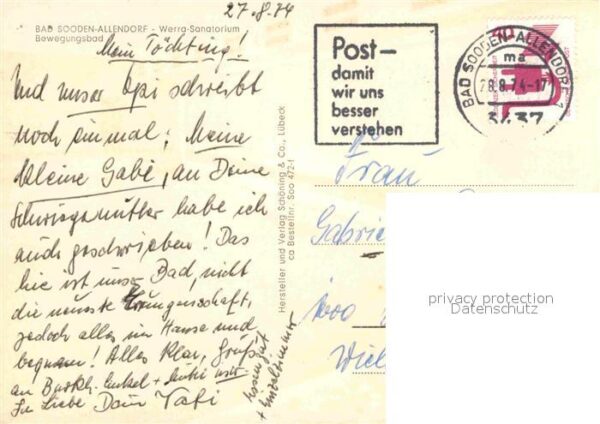 27.8.74
BAD SOODEN-ALLENDORF - Werra-Sanatorium
Bewegungsbad
Mein Töchting!
Und unser Opi schreibt
noch einmal; Meine
kleine Gabi, an Deine
Schwiegermutter habe ich
auch geschrieben! Das
hie ist unser Bad, nicht
die neueste Errungenschaft,
jedoch alles im Hause und
bequem! Alles klar, Grüße
an Burkh.
In Liebe Dein Vati
Essen gut
+ Einzelzimmer
Hersteller und Verlag Schöning & Co., Lübeck
ca Bestellnr. Soo 472-1
Post-
damit
wir uns
besser
verstehen
BAD SOODEN-ALLENDORF 1
ma
28.8.74-17
3437
Frau
Gabrie
Wie
privacy protection
Datenschutz